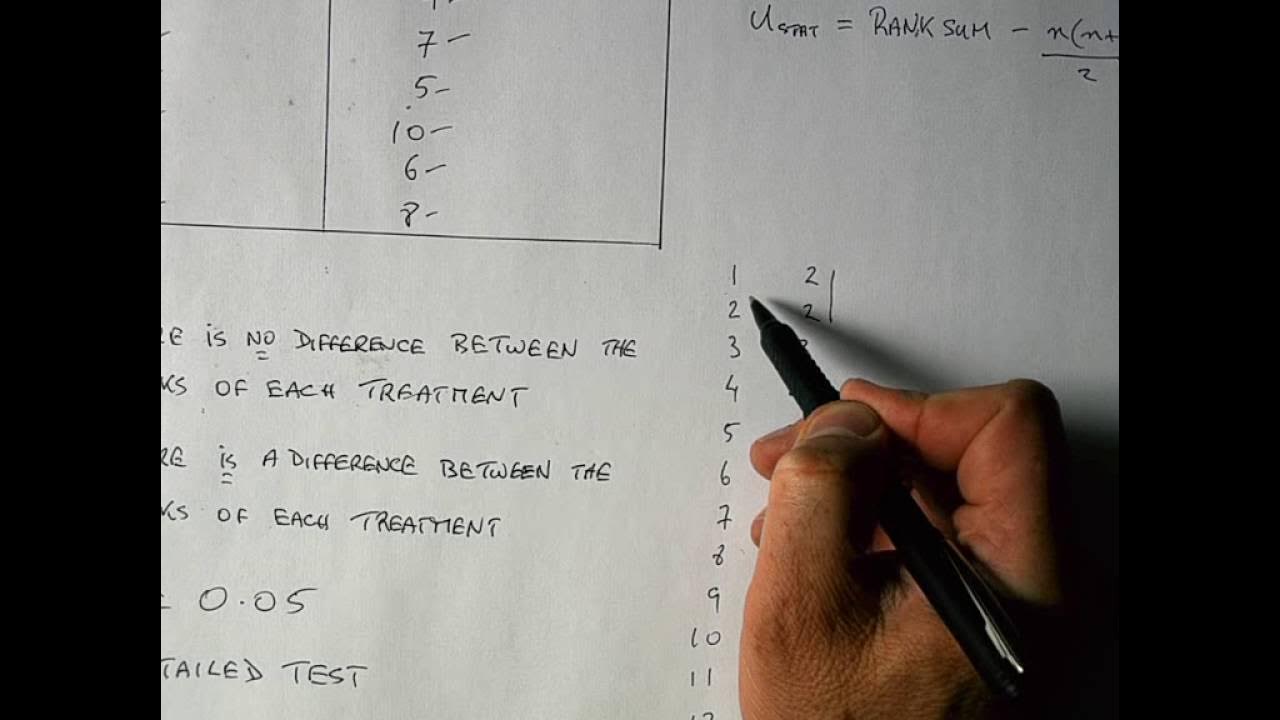 7 -
5 -
10 -
6 -
8 -
USTAT = RANK SUM - n(n+
2
1 2
2 2
3
4
5
6
7
8
9
10
11
IS NO DIFFERENCE BETWEEN THE
OF EACH TREATMENT
IS A DIFFERENCE BETWEEN THE
OF EACH TREATMENT
0.05
TAILED TEST